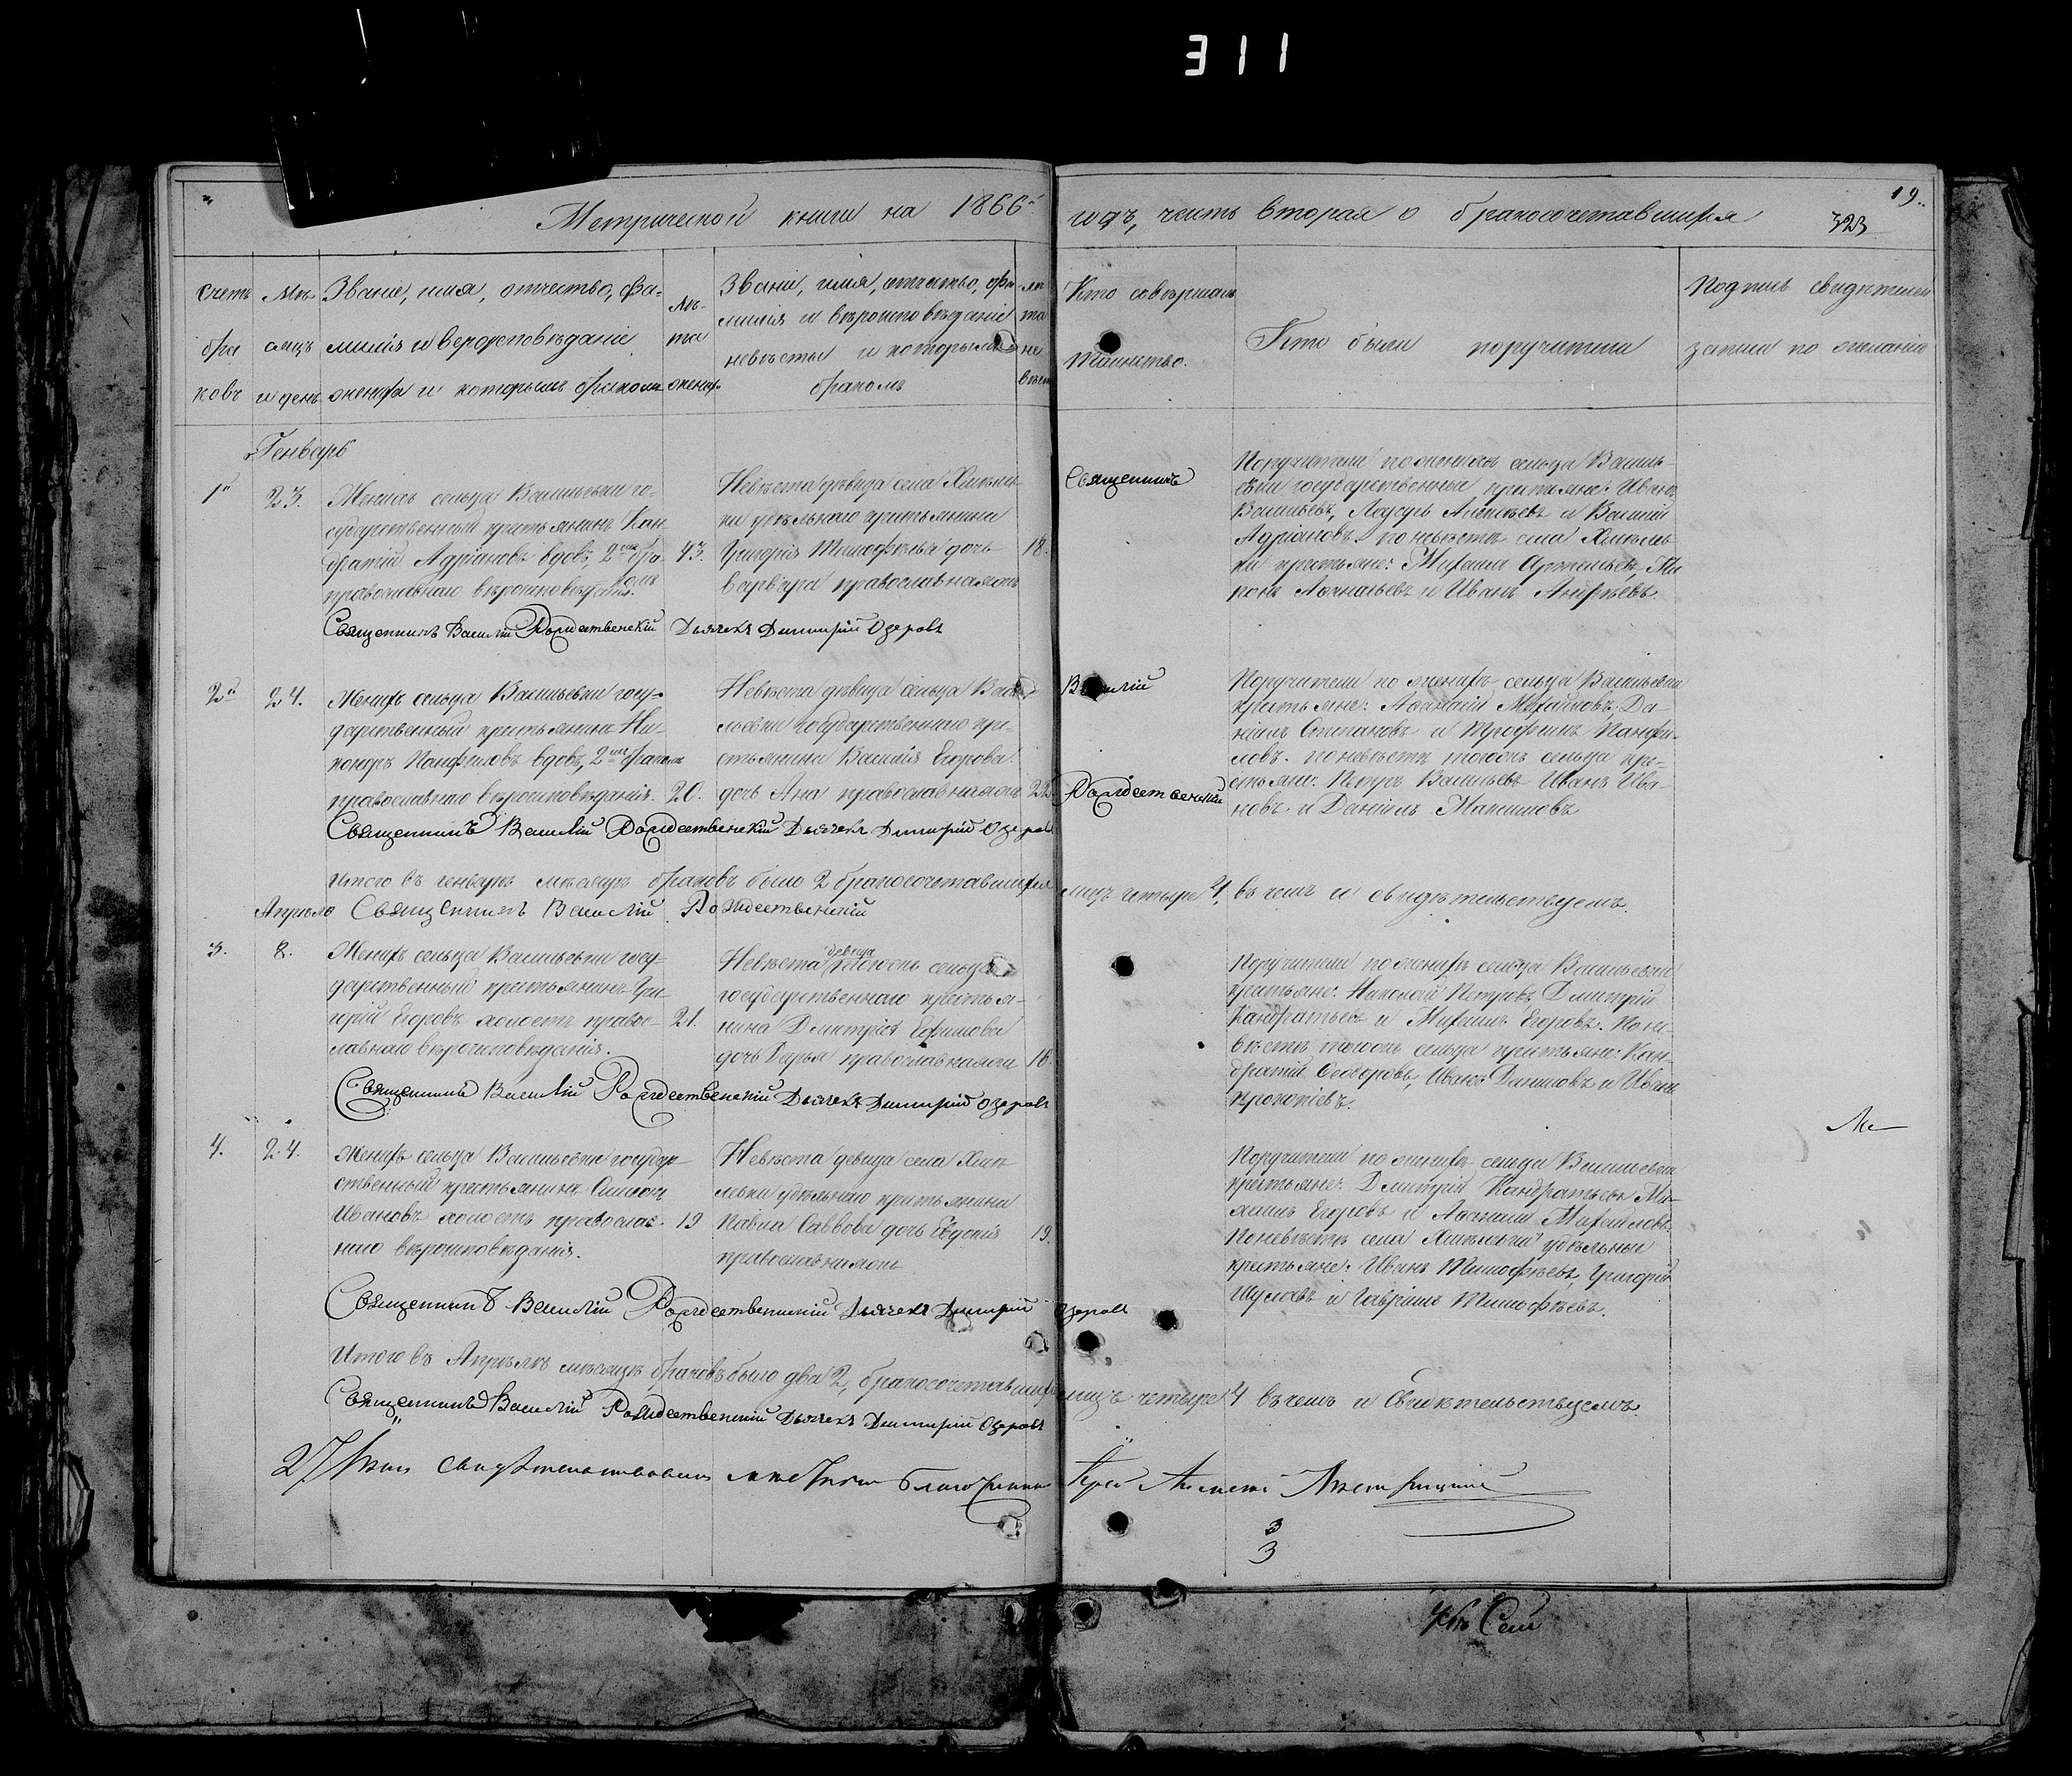 311
Метрической книги на 1866й
годъ, часть вторая о бракосочетавшихся
19.
323
Счетъ браковъ
Мѣсяцъ и день
Званіе, имя, отчество, фамилія и вероисповѣданіе жениха и которымъ бракомъ
Лѣта жениха
Званіе, имя, отчество, фамилія и вѣроисповѣданіе невѣсты и которымъ бракомъ
Лѣта невѣсты
Кто совершалъ таинство.
Кто были поручители
Подпись свидѣтелей записи по желанію
Генварь
1й
23.
Женихъ сельца Васильевки го-
сударственный крестьянинъ Кан-
дратій Адріановъ вдовъ, 2мъ бра-
комъ
православнаго вѣроисповѣданія.
43.
Невѣста дѣвица села Хмѣлев-
ки удѣльнаго крестьянина
Григорія Тимофѣева дочь
православнаяжъ
18.
Священникъ
Поручители по женихѣ сельца Василь-
евки государственные крестьяне: Иванъ
Васильевъ, и Василій
Адріановъ. по невѣстѣ села Хмѣлев-
ки крестьяне: Михаилъ Артемьевъ, Ми-
ронъ и Иванъ Андрѣевъ.
Священникъ Василій Рождественскій Дьячекъ Димитрій Озеровъ
2й
24.
Женихъ сельца Васильевки госу-
дарственный крестьянинъ Ни-
каноръ Панфиловъ вдовъ, 2мъ бракомъ
православнаго вѣроисповѣданія.
20.
Невѣста дѣвица сельца Васи-
льевки государственнаго кре-
стьянина Василія Егорова
дочь Анна православнаяжъ
22.
Василій
Рождественскій
Поручители по женихѣ сельца Васильевки
крестьяне: Афанасій Михайловъ, Да-
ніилъ Степановъ и Трофимъ Панфи-
ловъ. по невѣстѣ тогожъ сельца кре-
стьяне: Петръ Васильевъ Иванъ Ива-
новъ и Даніилъ Максимовъ
Священникъ Василій Рождественскій Дьячекъ Димитрій Озеровъ
Итого въ генварѣ мѣсяцѣ браковъ было 2 бракосочетавшихся
лицъ четыре 4, въ чемъ и свидѣтельствуемъ.
Апрѣль Священникъ Василій Рождественскій
3.
8.
Женихъ сельца Васильевки госу-
дарственный крестьянинъ Гри-
горій Егоровъ холостъ правос-
лавнаго вѣроисповѣданія.
21.
дѣвица
Невѣста тогожъ сельца
государственнаго крестья-
нина Дмитрія Ефимова
дочь Дарья православнаяжъ
16.
Поручители по женихѣ сельца Васильевки
крестьяне: Николай Петровъ, Дмитрій
Кандратьевъ и Михаилъ Егоровъ. По не-
вѣстѣ тогожъ сельца крестьяне: Кан-
дратій Ѳеодоровъ, Иванъ Даниловъ и Иванъ
Прокопіевъ.
Священникъ Василій Рождественскій Дьячекъ Димитрій Озеровъ
4.
24.
Женихъ сельца Васильевки государ-
ственный крестьянинъ Симеонъ
Ивановъ холостъ православ-
наго вѣроисповѣданія.
19
Невѣста дѣвица села Хмѣ-
левки удѣльнаго крестьянина
Павла Саввова дочь Евдокія
православнаяжъ
19.
Поручители по женихѣ сельца Васильевки
крестьяне: Дмитрій Кандратьевъ Ми-
хаилъ Егоровъ и Афанасій Михайловъ.
По невѣстѣ села Хмѣлевки удѣльные
крестьяне: Иванъ Тимофѣевъ, Григорій
и Гавріилъ Тимофѣевъ.
Священникъ Василій Рождественскій Дьячекъ Димитрій Озеровъ
Итого въ Апрѣлѣ мѣсяцѣ браковъ было два 2, бракосочетавшихся
лицъ четыре 4 въ чемъ и свидѣтельствуемъ.
Священникъ Василій Рождественскій Дьячекъ Димитрій Озеровъ
27 свидѣтельствовалъ Благочинный Іерей
3
3